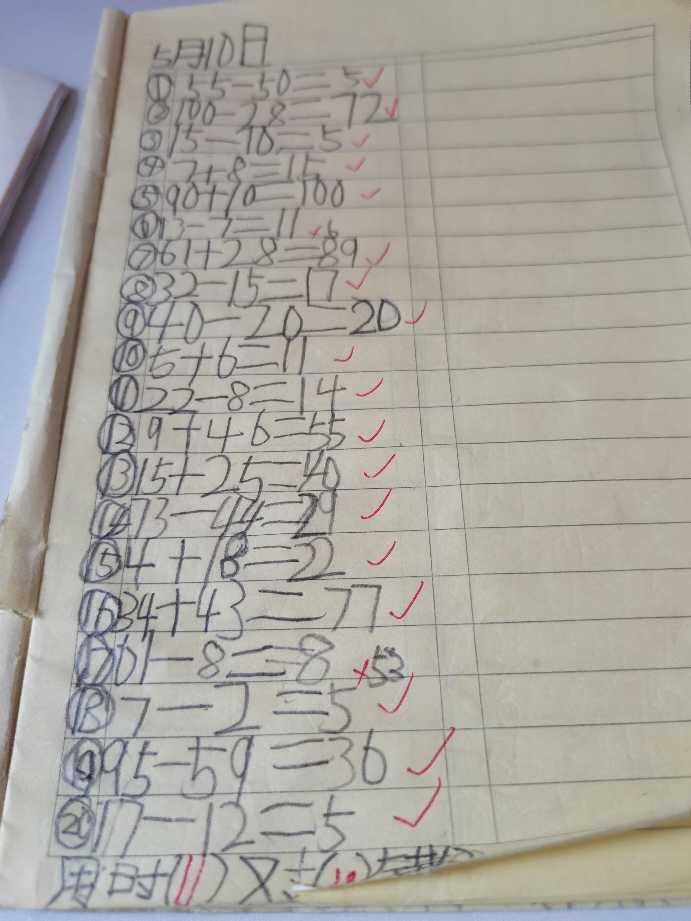 5月10日
①55-50=5✓
②100-28=72✓
③15-10=5✓
④7+8=15✓
⑤90+10=100✓
⑥13-7=11×6
⑦61+28=89✓
⑧32-15=17✓
⑨40-20=20✓
⑩5+6=11✓
⑪22-8=14✓
⑫9+46=55✓
⑬15+25=40✓
⑭73-44=29✓
⑮4+18=22✓
⑯34+43=77✓
⑰61-8=8×53
⑱7-2=5✓
⑲95-59=36✓
⑳17-12=5✓
用时(11)又